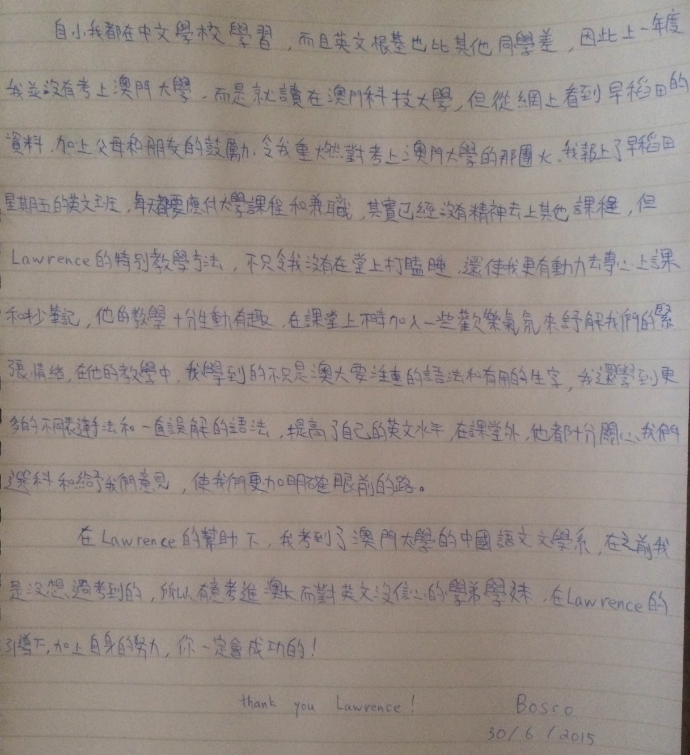 自小我都在中文學校學習，而且英文根基也比其他同學差，因此上一年度
我並沒有考上澳門大學，而是就讀在澳門科技大學，但從網上看到早稻田的
資料，加上父母和朋友的鼓勵，令我重燃對考上澳門大學的那團火，我報上了早稻田
星期五的英文班，每天都要應付大學課程和兼職，其實已經沒有精神去上其他課程，但
Lawrence的特別教學方法，不只令我沒有在堂上打瞌睡，還使我更有動力去專心上課
和抄筆記，他的教學十分生動有趣，在課堂上不時加入一些歡樂氣氛來紓解我們的緊
張情緒，在他的教學中，我學到的不只是澳大要注重的語法和有用的生字，我還學到更
多的不同表達手法和一直誤解的語法，提高了自己的英文水平，在課堂外，他都十分關心我們
選科和給予我們意見，使我們更加明確眼前的路。
在Lawrence的幫助下，我考到了澳門大學的中國語文文學系，在之前我
是沒想過考到的，所以有意考進澳大而對英文沒信心的學弟學妹，在Lawrence的
引導下，加上自身的努力，你一定會成功的！
thank you Lawrence! Bosco
30/6/2015